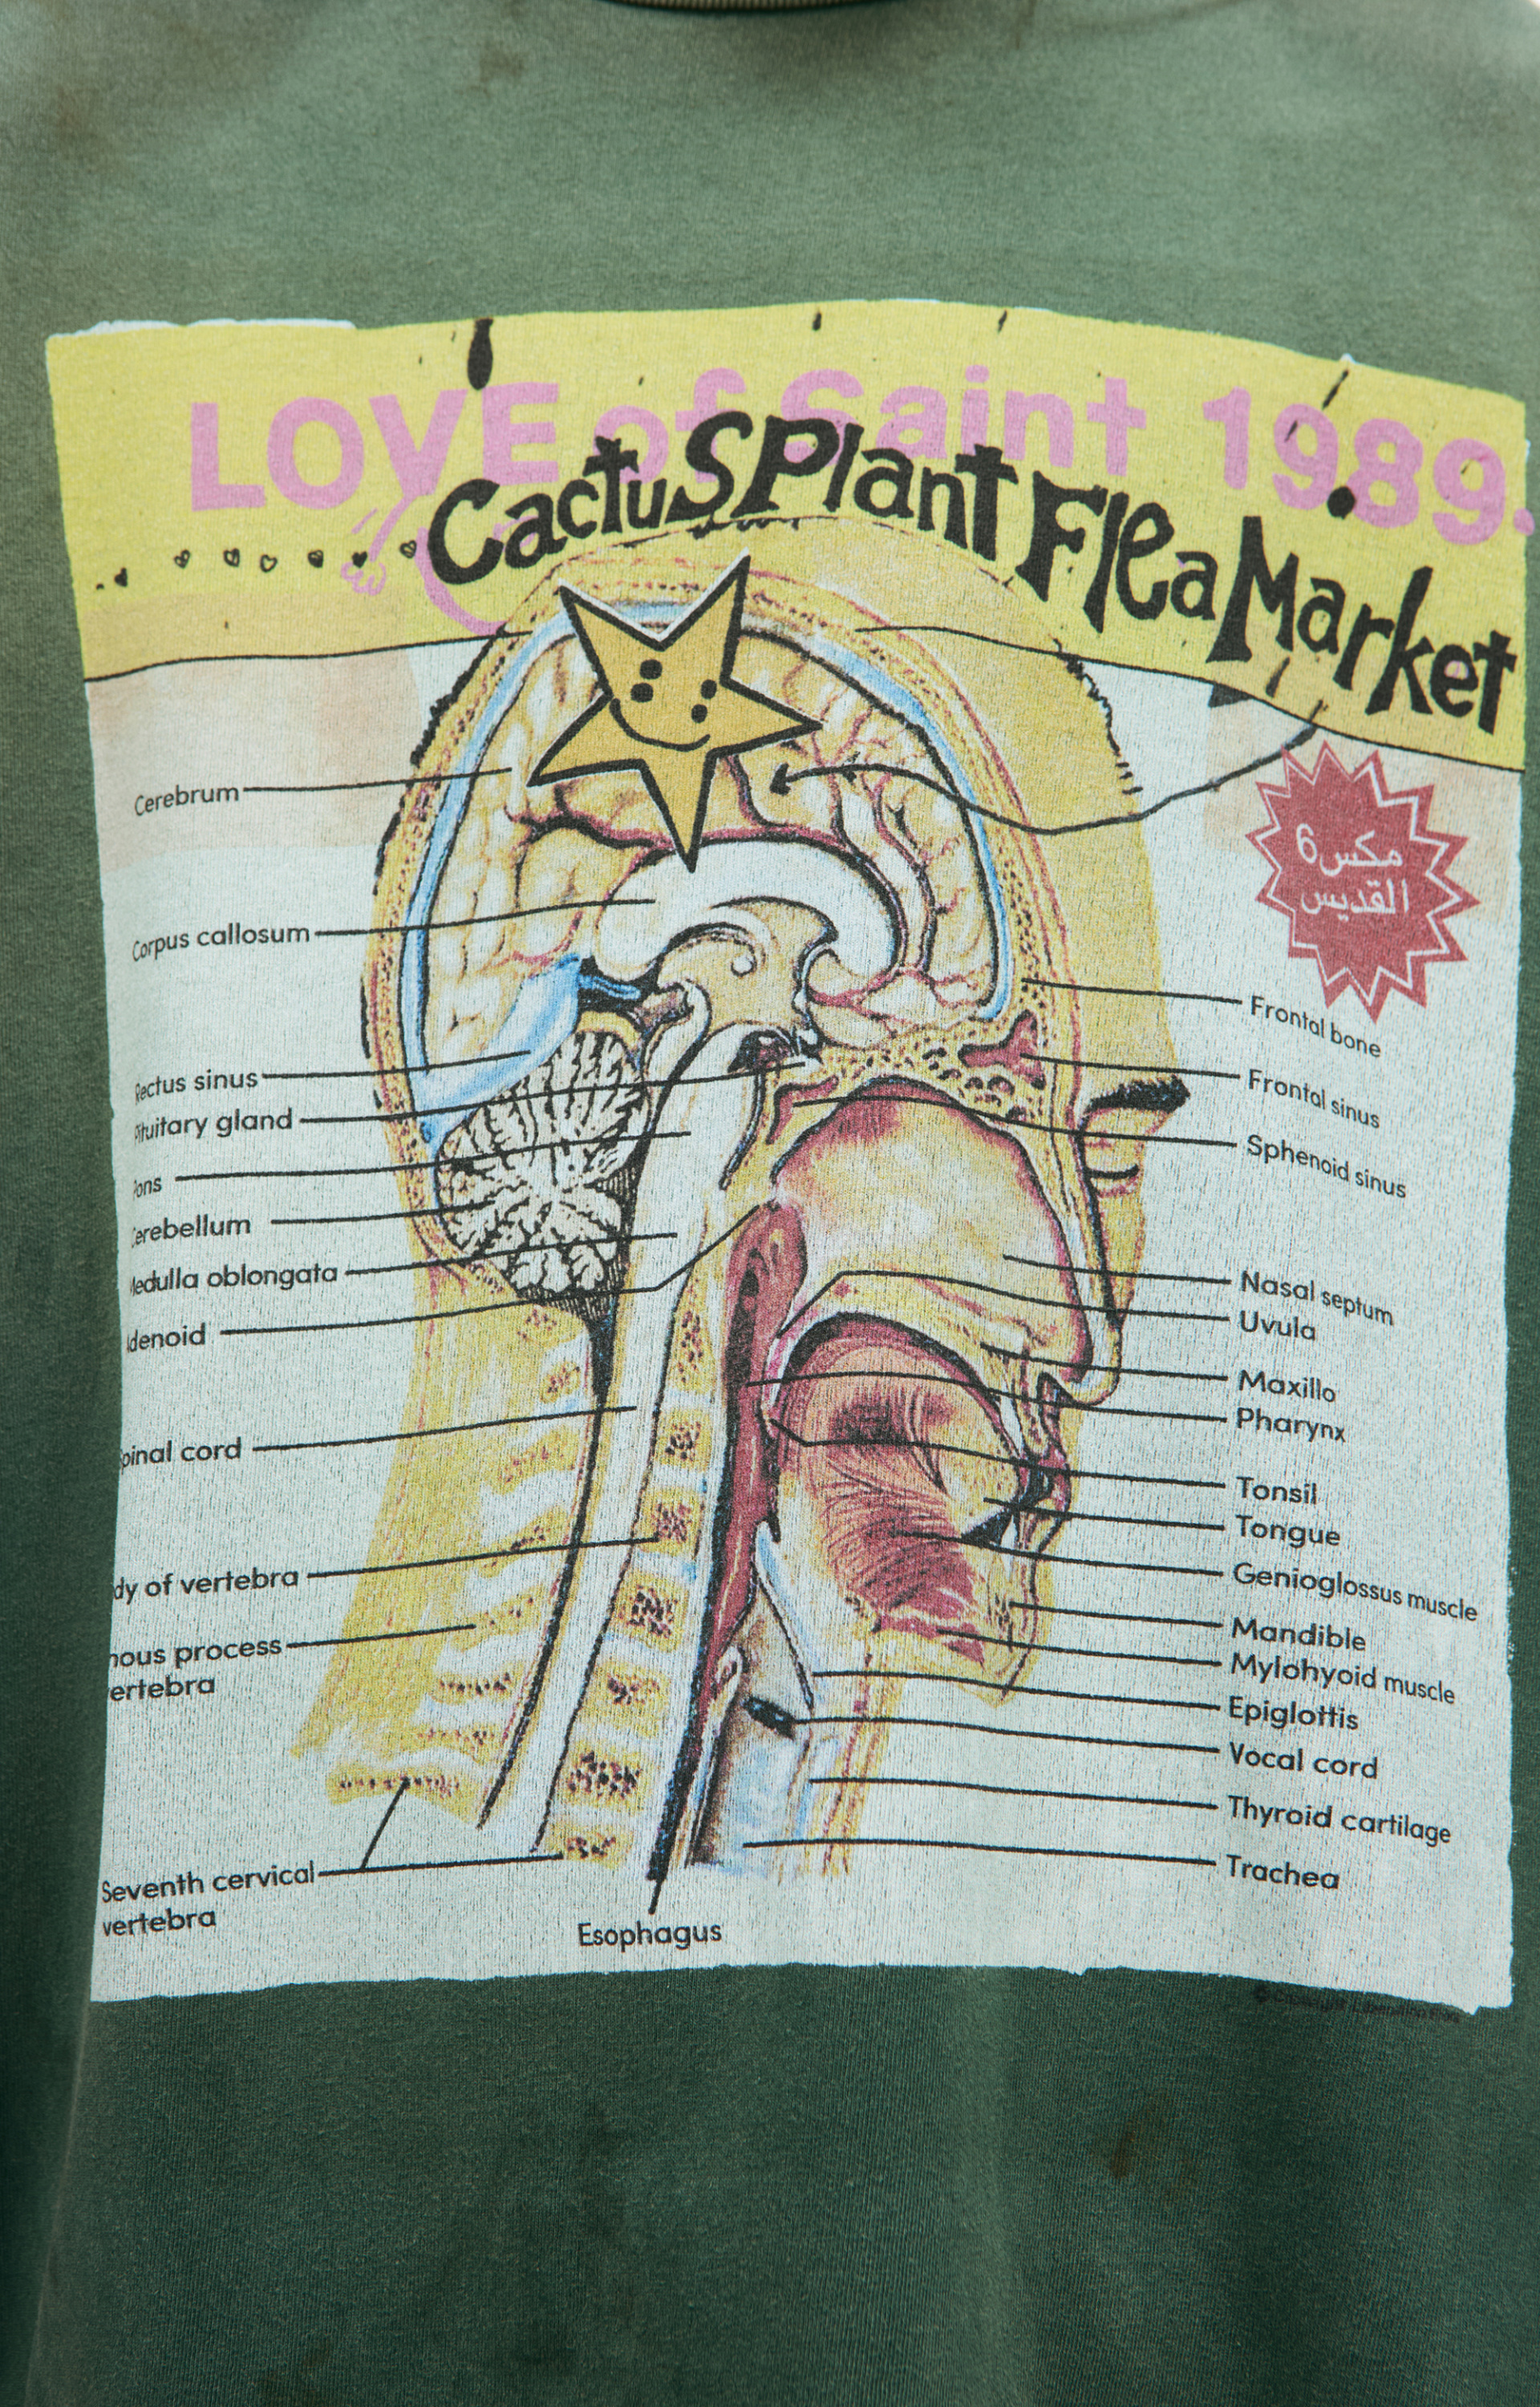 LOVE of Saint 1989.
CactuS Plant Flea Market
مكس6
القديس
Cerebrum
Corpus callosum
Rectus sinus
Pituitary gland
Pons
Cerebellum
Medulla oblongata
Adenoid
pinal cord
dy of vertebra
nous process
ertebra
Seventh cervical
vertebra
Esophagus
Frontal bone
Frontal sinus
Sphenoid sinus
Nasal septum
Uvula
Maxillo
Pharynx
Tonsil
Tongue
Genioglossus muscle
Mandible
Mylohyoid muscle
Epiglottis
Vocal cord
Thyroid cartilage
Trachea